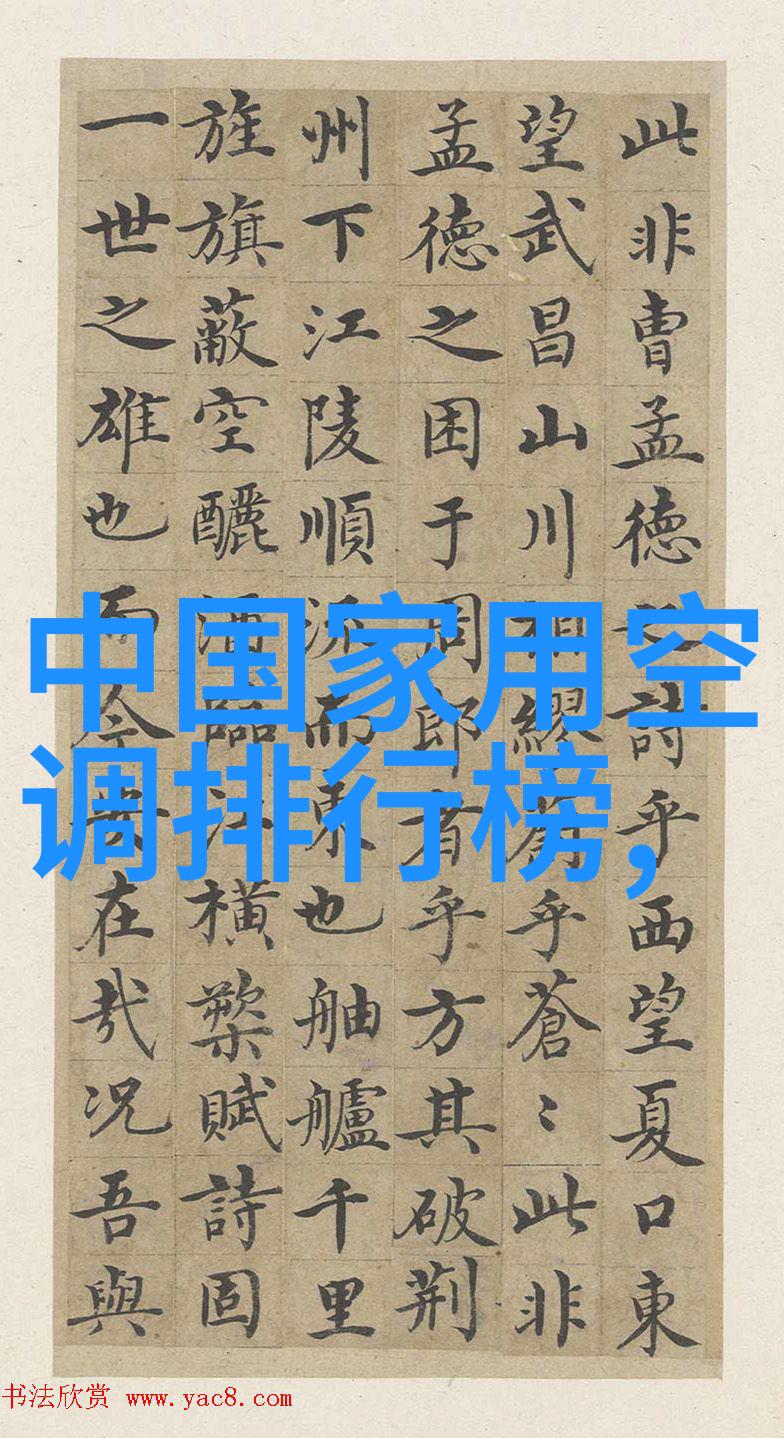 此非曹孟德之詩乎西望夏口東
望武昌山川相繆乎蒼〻此非
孟德之困于周郎者乎方其破荆
州下江陵順流而東也舳艫千里
旌旗蔽空釃酒臨江橫槊賦詩固
一世之雄也而今安在哉况吾與
中国家用空
调排行榜，
书法欣赏 www.yac8.com